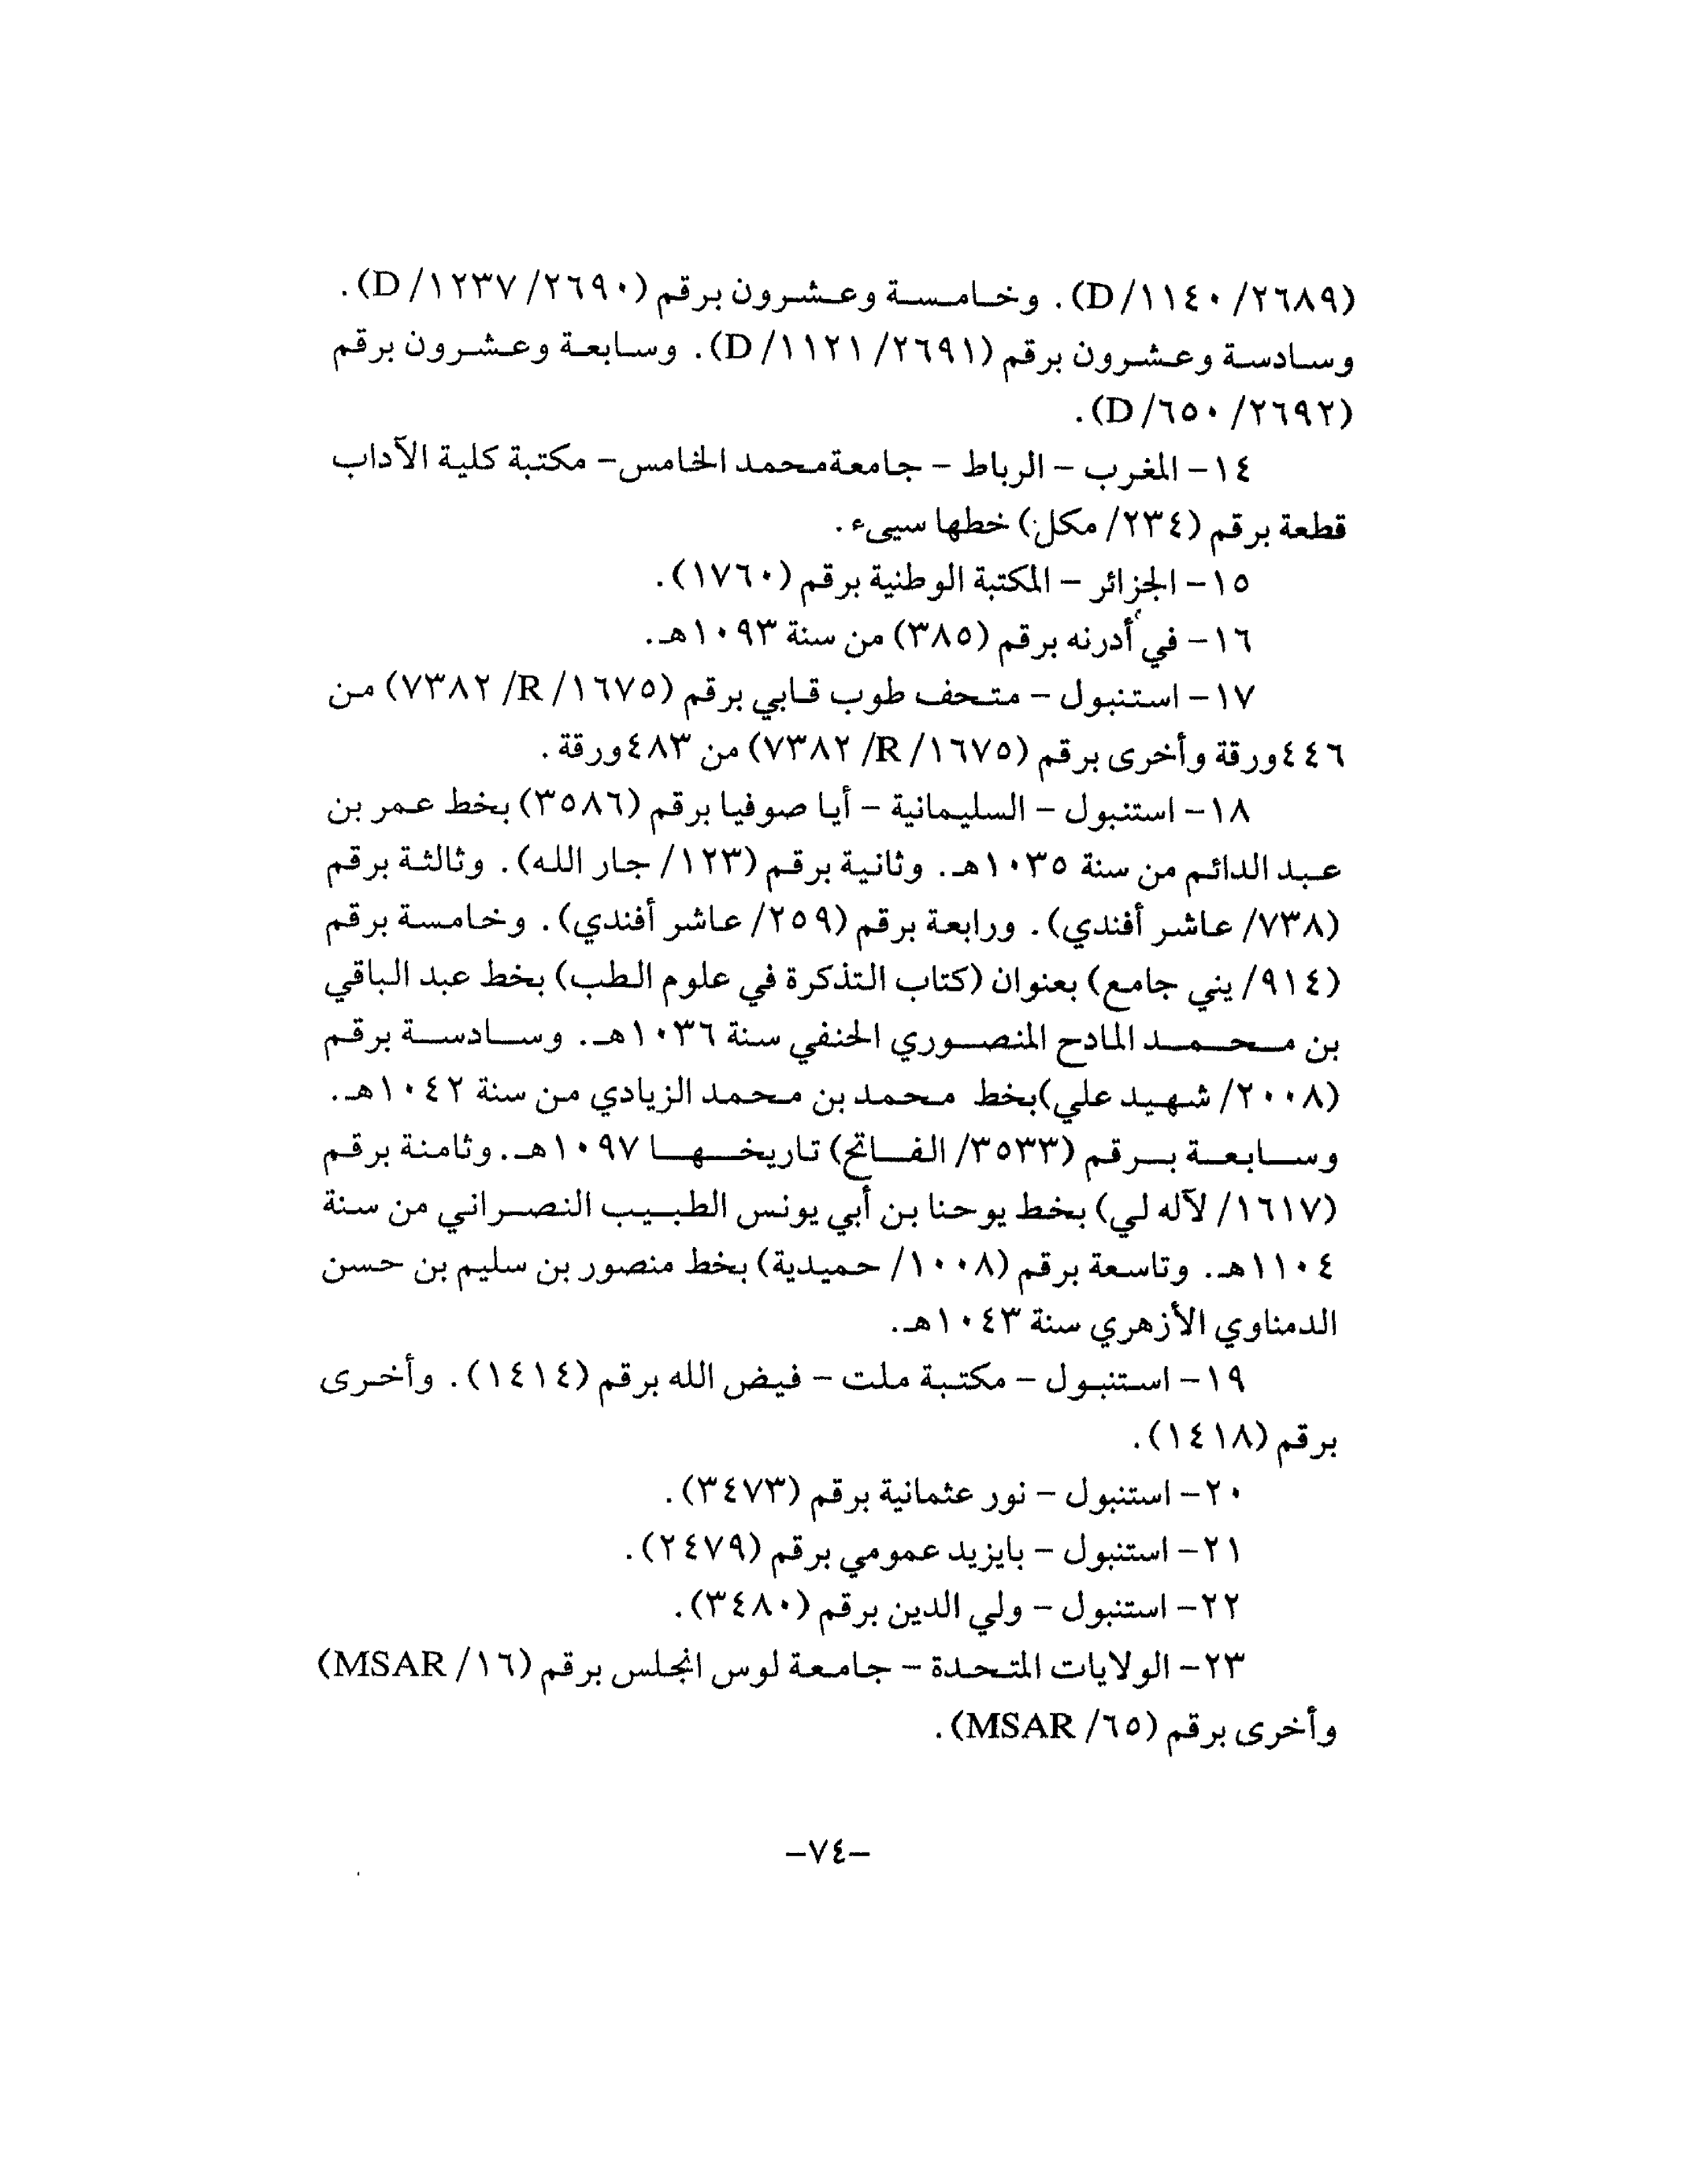 (٢٦٨٩/ ١١٤٠/D). وخامسة وعشرون برقم (٢٦٩٠/ ١٢٣٧/ D).
وسادسة وعشرون برقم (٢٦٩١/ ١١٢١/ D). وسابعة وعشرون برقم
(٢٦٩٢/ ٦٥٠/ D).
١٤- المغرب - الرباط - جامعةمحمد الخامس- مكتبة كلية الآداب
قطعة برقم (٢٣٤/ مكل) خطها سيىء.
١٥- الجزائر - المكتبة الوطنية برقم (١٧٦٠).
١٦- في أدرنه برقم (٣٨٥) من سنة ١٠٩٣هـ.
١٧- استنبول - متحف طوب قابي برقم (١٦٧٥/ R/ ٧٣٨٢) من
٤٤٦ورقة وأخرى برقم (١٦٧٥/ R/ ٧٣٨٢) من ٤٨٣ورقة.
١٨- استنبول - السليمانية - أيا صوفيا برقم (٣٥٨٦) بخط عمر بن
عبد الدائم من سنة ١٠٣٥هـ. وثانية برقم (١٢٣/ جار الله). وثالثة برقم
(٧٣٨/ عاشر أفندي). ورابعة برقم (٢٥٩/ عاشر أفندي). وخامسة برقم
(٩١٤/ يني جامع) بعنوان (كتاب التذكرة في علوم الطب) بخط عبد الباقي
بن محمد المادح المنصوري الحنفي سنة ١٠٣٦هـ. وسادسة برقم
(٢٠٠٨/ شهيد علي)بخط محمد بن محمد الزيادي من سنة ١٠٤٢هـ.
وسابعة برقم (٣٥٣٣/ الفاتح) تاريخها ١٠٩٧هـ. وثامنة برقم
(١٦١٧/ لآله لي) بخط يوحنا بن أبي يونس الطبيب النصراني من سنة
١١٠٤هـ. وتاسعة برقم (١٠٠٨/ حميدية) بخط منصور بن سليم بن حسن
الدمناوي الأزهري سنة ١٠٤٣هـ.
١٩- استنبول - مكتبة ملت - فيض الله برقم (١٤١٤). وأخرى
برقم (١٤١٨).
٢٠- استنبول - نور عثمانية برقم (٣٤٧٣).
٢١- استنبول - بايزيد عمومي برقم (٢٤٧٩).
٢٢- استنبول - ولي الدين برقم (٣٤٨٠).
٢٣- الولايات المتحدة - جامعة لوس انجلس برقم (١٦/ MSAR)
وأخرى برقم (٦٥/ MSAR).
-٧٤-